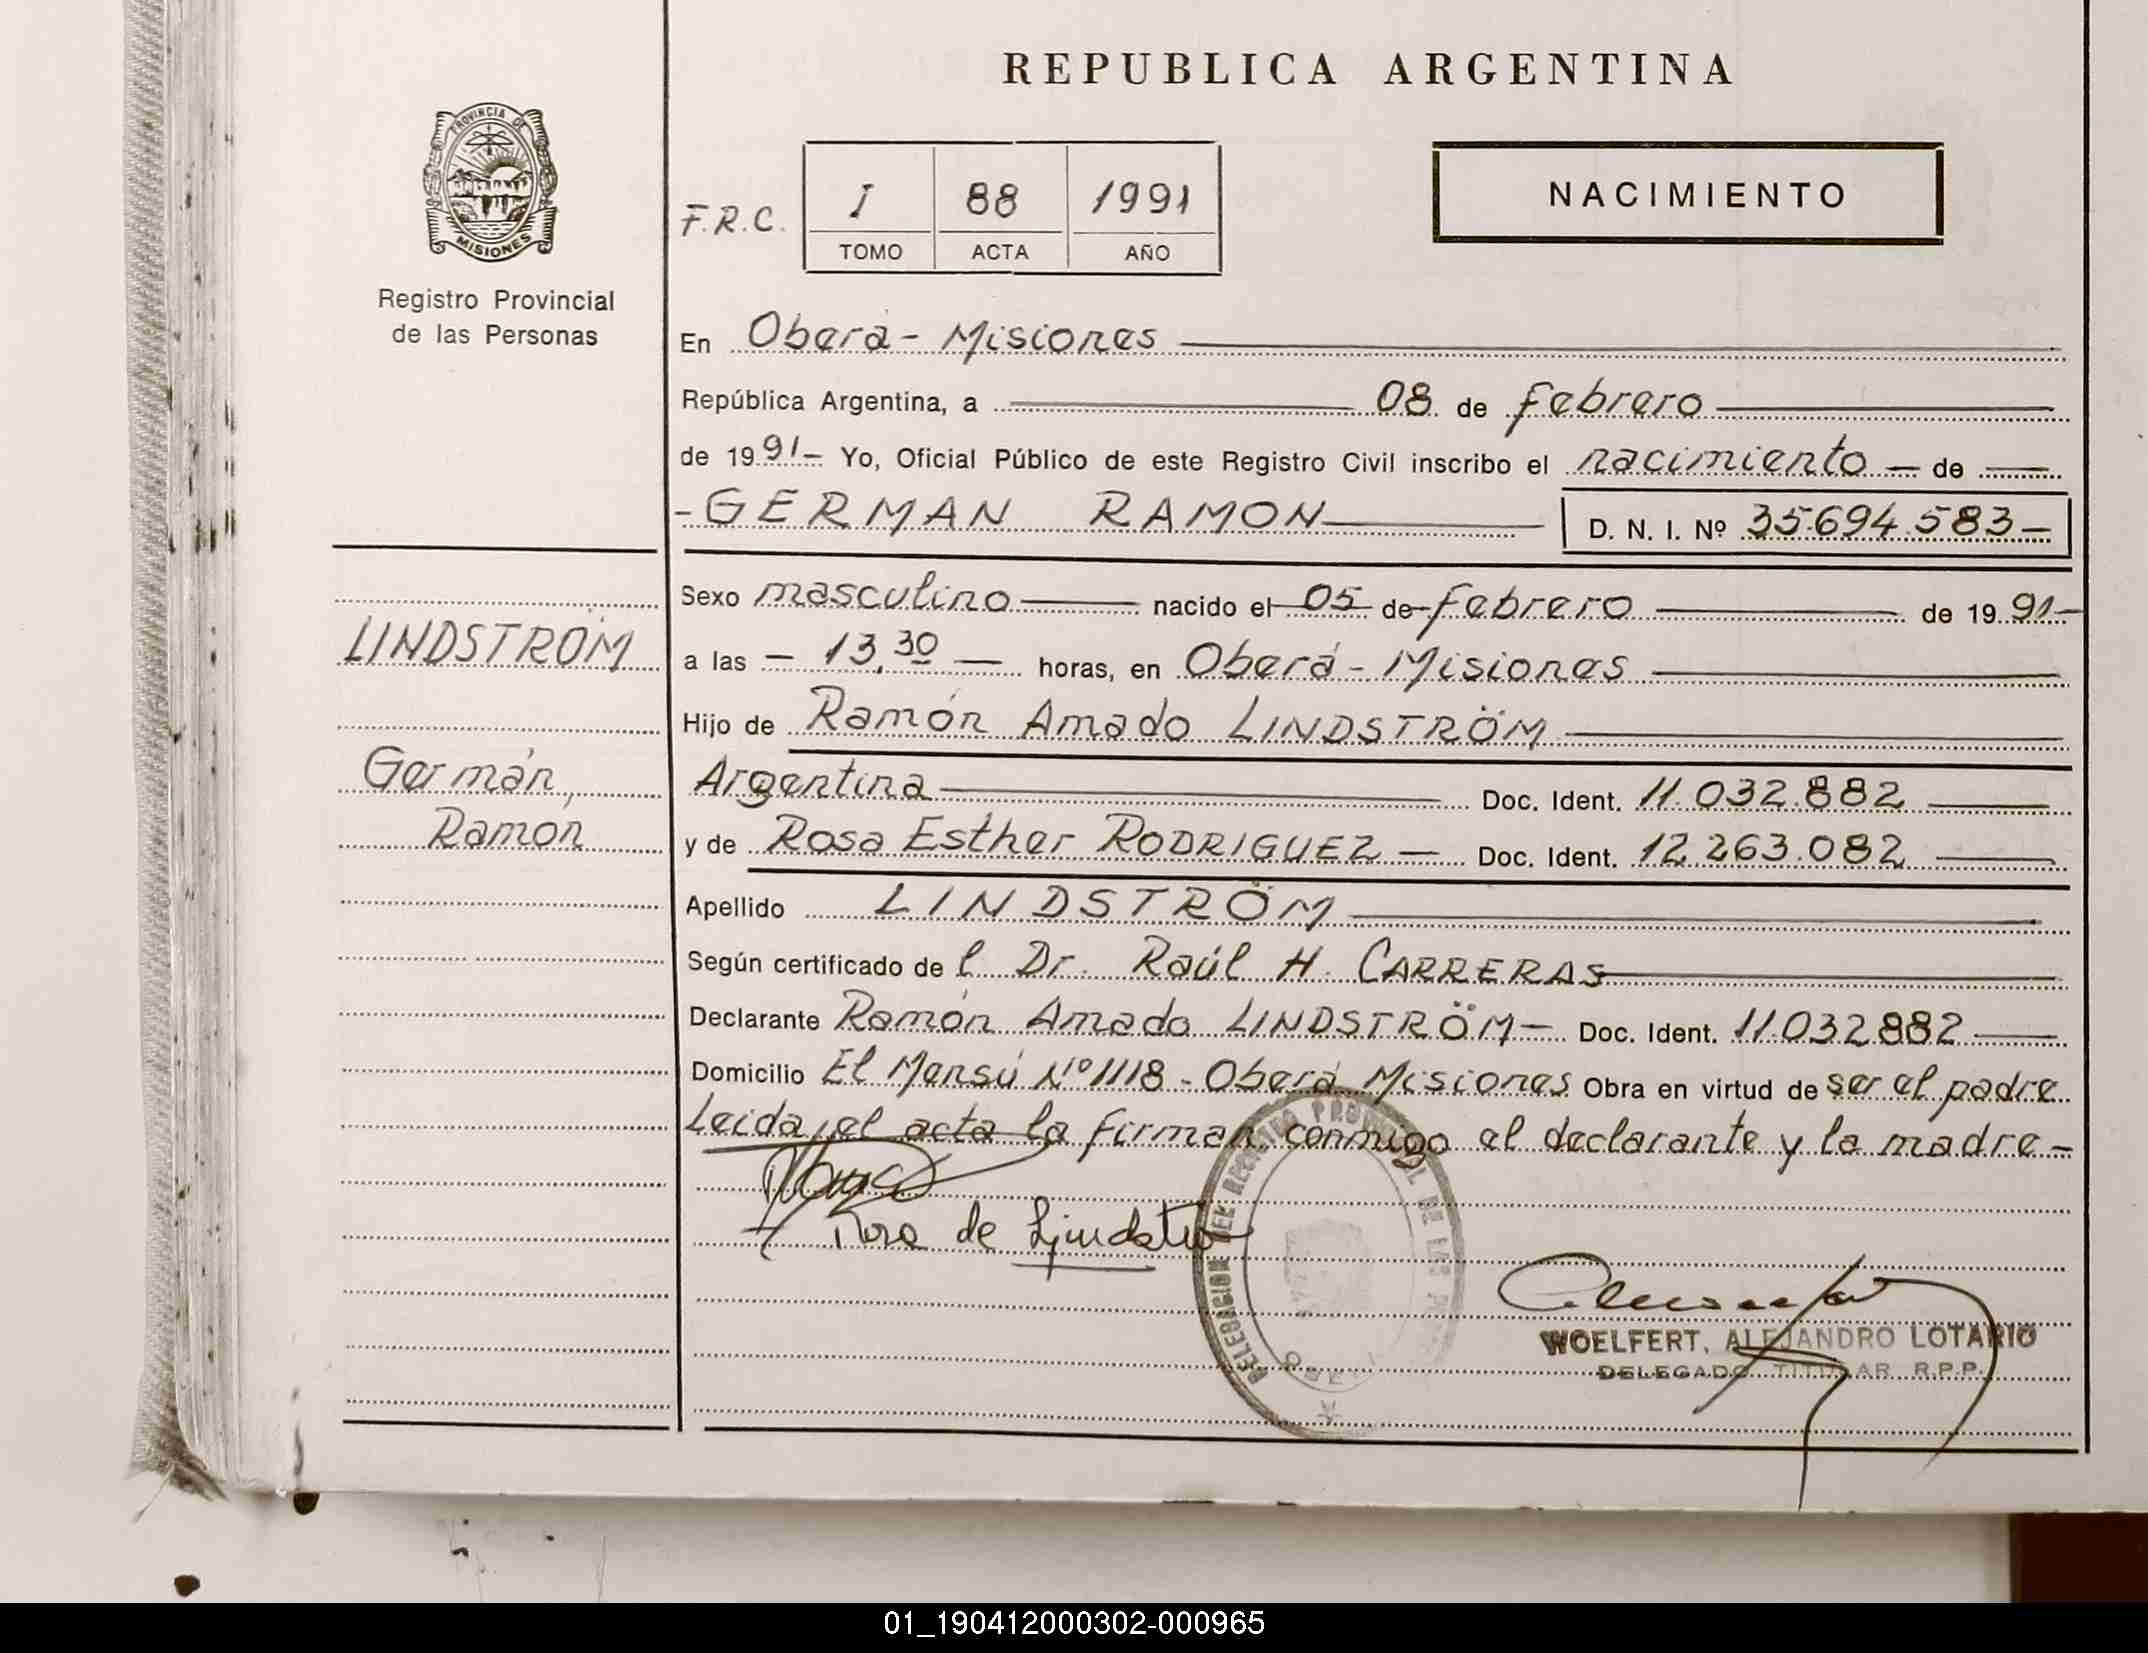 REPUBLICA ARGENTINA
PROVINCIA DE
MISIONES
Registro Provincial
de las Personas
F.R.C.
I 88 1991
TOMO ACTA AÑO
NACIMIENTO
En Oberá - Misiones
República Argentina, a 08 de febrero
de 1991- Yo, Oficial Público de este Registro Civil inscribo el nacimiento - de
- GERMAN RAMON D. N. I. Nº 35.694.583-
LINDSTRÖM
Germán,
Ramon
Sexo masculino nacido el 05 de febrero de 1991-
a las - 13,30 - horas, en Oberá - Misiones
Hijo de Ramón Amado LINDSTRÖM
Argentina Doc. Ident. 11.032.882
y de Rosa Esther RODRIGUEZ - Doc. Ident. 12.263.082
Apellido LINDSTRÖM
Según certificado de l Dr. Raúl H. CARRERAS
Declarante Ramón Amado LINDSTRÖM - Doc. Ident. 11.032.882
Domicilio El Mensú Nº 1118 - Oberá Misiones Obra en virtud de ser el padre
Leida el acta la firman conmigo el declarante y la madre -
Rosa de
DELEGACION DEL REGISTRO PROVINCIAL DE LAS
WOELFERT, ALEJANDRO LOTARIO
DELEGADO TITULAR R.P.P.
01_190412000302-000965